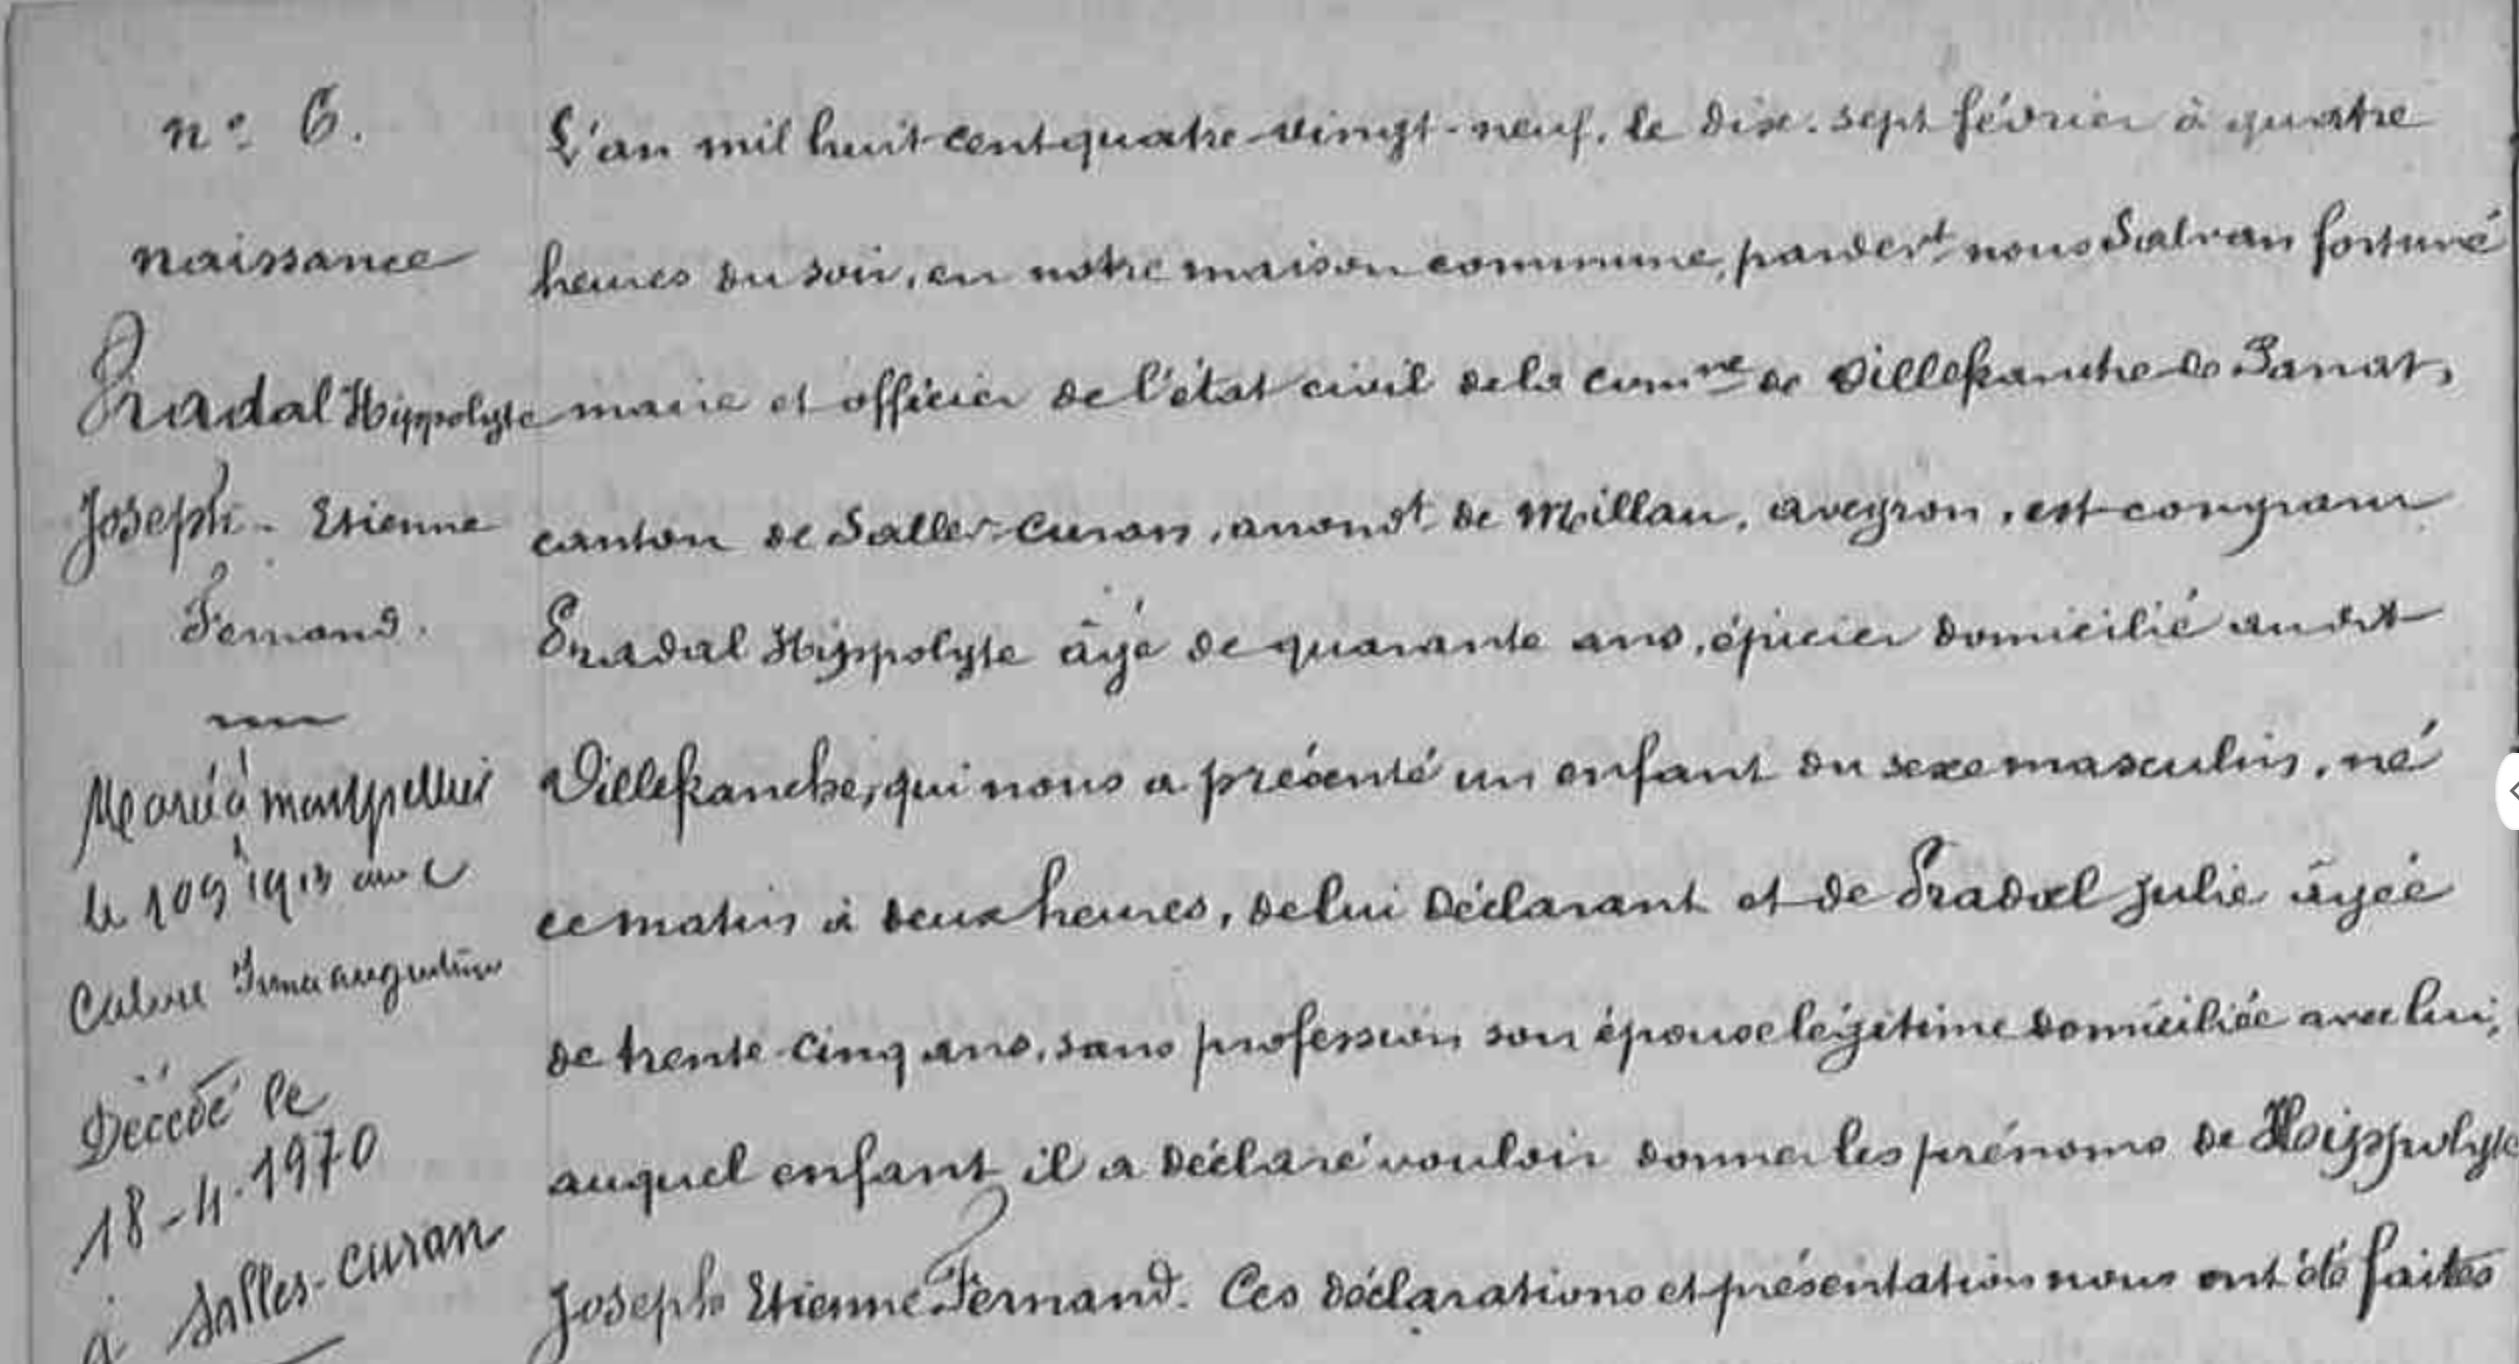 n° 6.
naissance
Pradal Hippolyte
Joseph - Etienne
Fernand.
Marié à montpellier
le 1 09 1913 avec
Irma augustine
Décédé le
18-4-1970
à Salles-Curan
L'an mil huit cent quatre-vingt-neuf, le dix-sept février à quatre
heures du soir, en notre maison commune, pardevt nous Salvan fortuné
maire et officier de l'état civil de la comne de Villefranche de Panat,
canton de Salles-Curan, arrondt de Millau, aveyron, est comparu
Pradal Hippolyte âgé de quarante ans, épicier domicilié audit
Villefranche, qui nous a présenté un enfant du sexe masculin, né
ce matin à deux heures, de lui déclarant et de Pradal Julie âgée
de trente-cinq ans, sans profession son épouse légitime domiciliée avec lui,
auquel enfant il a déclaré vouloir donner les prénoms de Hippolyte
Joseph Etienne Fernand. Ces déclarations et présentation nous ont été faites